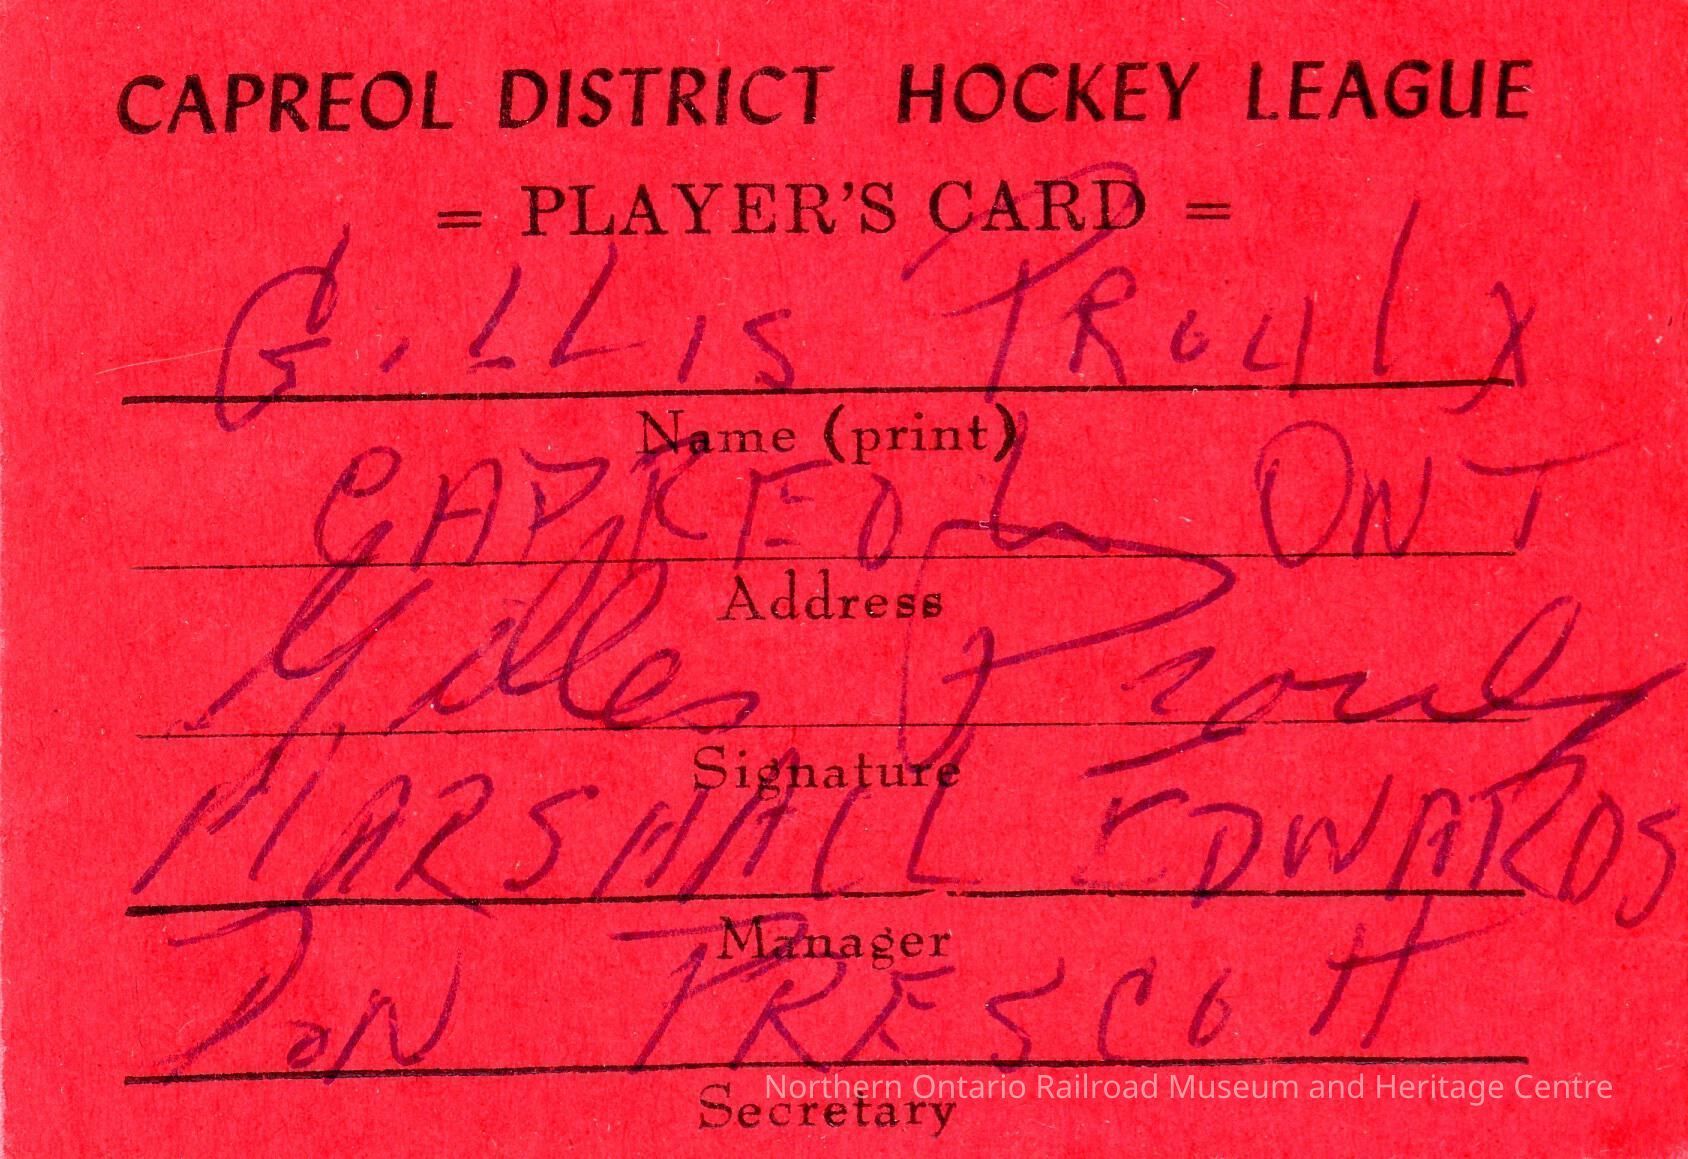 CAPREOL DISTRICT HOCKEY LEAGUE
= PLAYER'S CARD =
GILLIS PROULX
Name (print)
CAPREOL ONT
Address
Gilles Proulx
Signature
MARSHALL EDWARDS
Manager
DON PRESCOTT
Secretary
Northern Ontario Railroad Museum and Heritage Centre